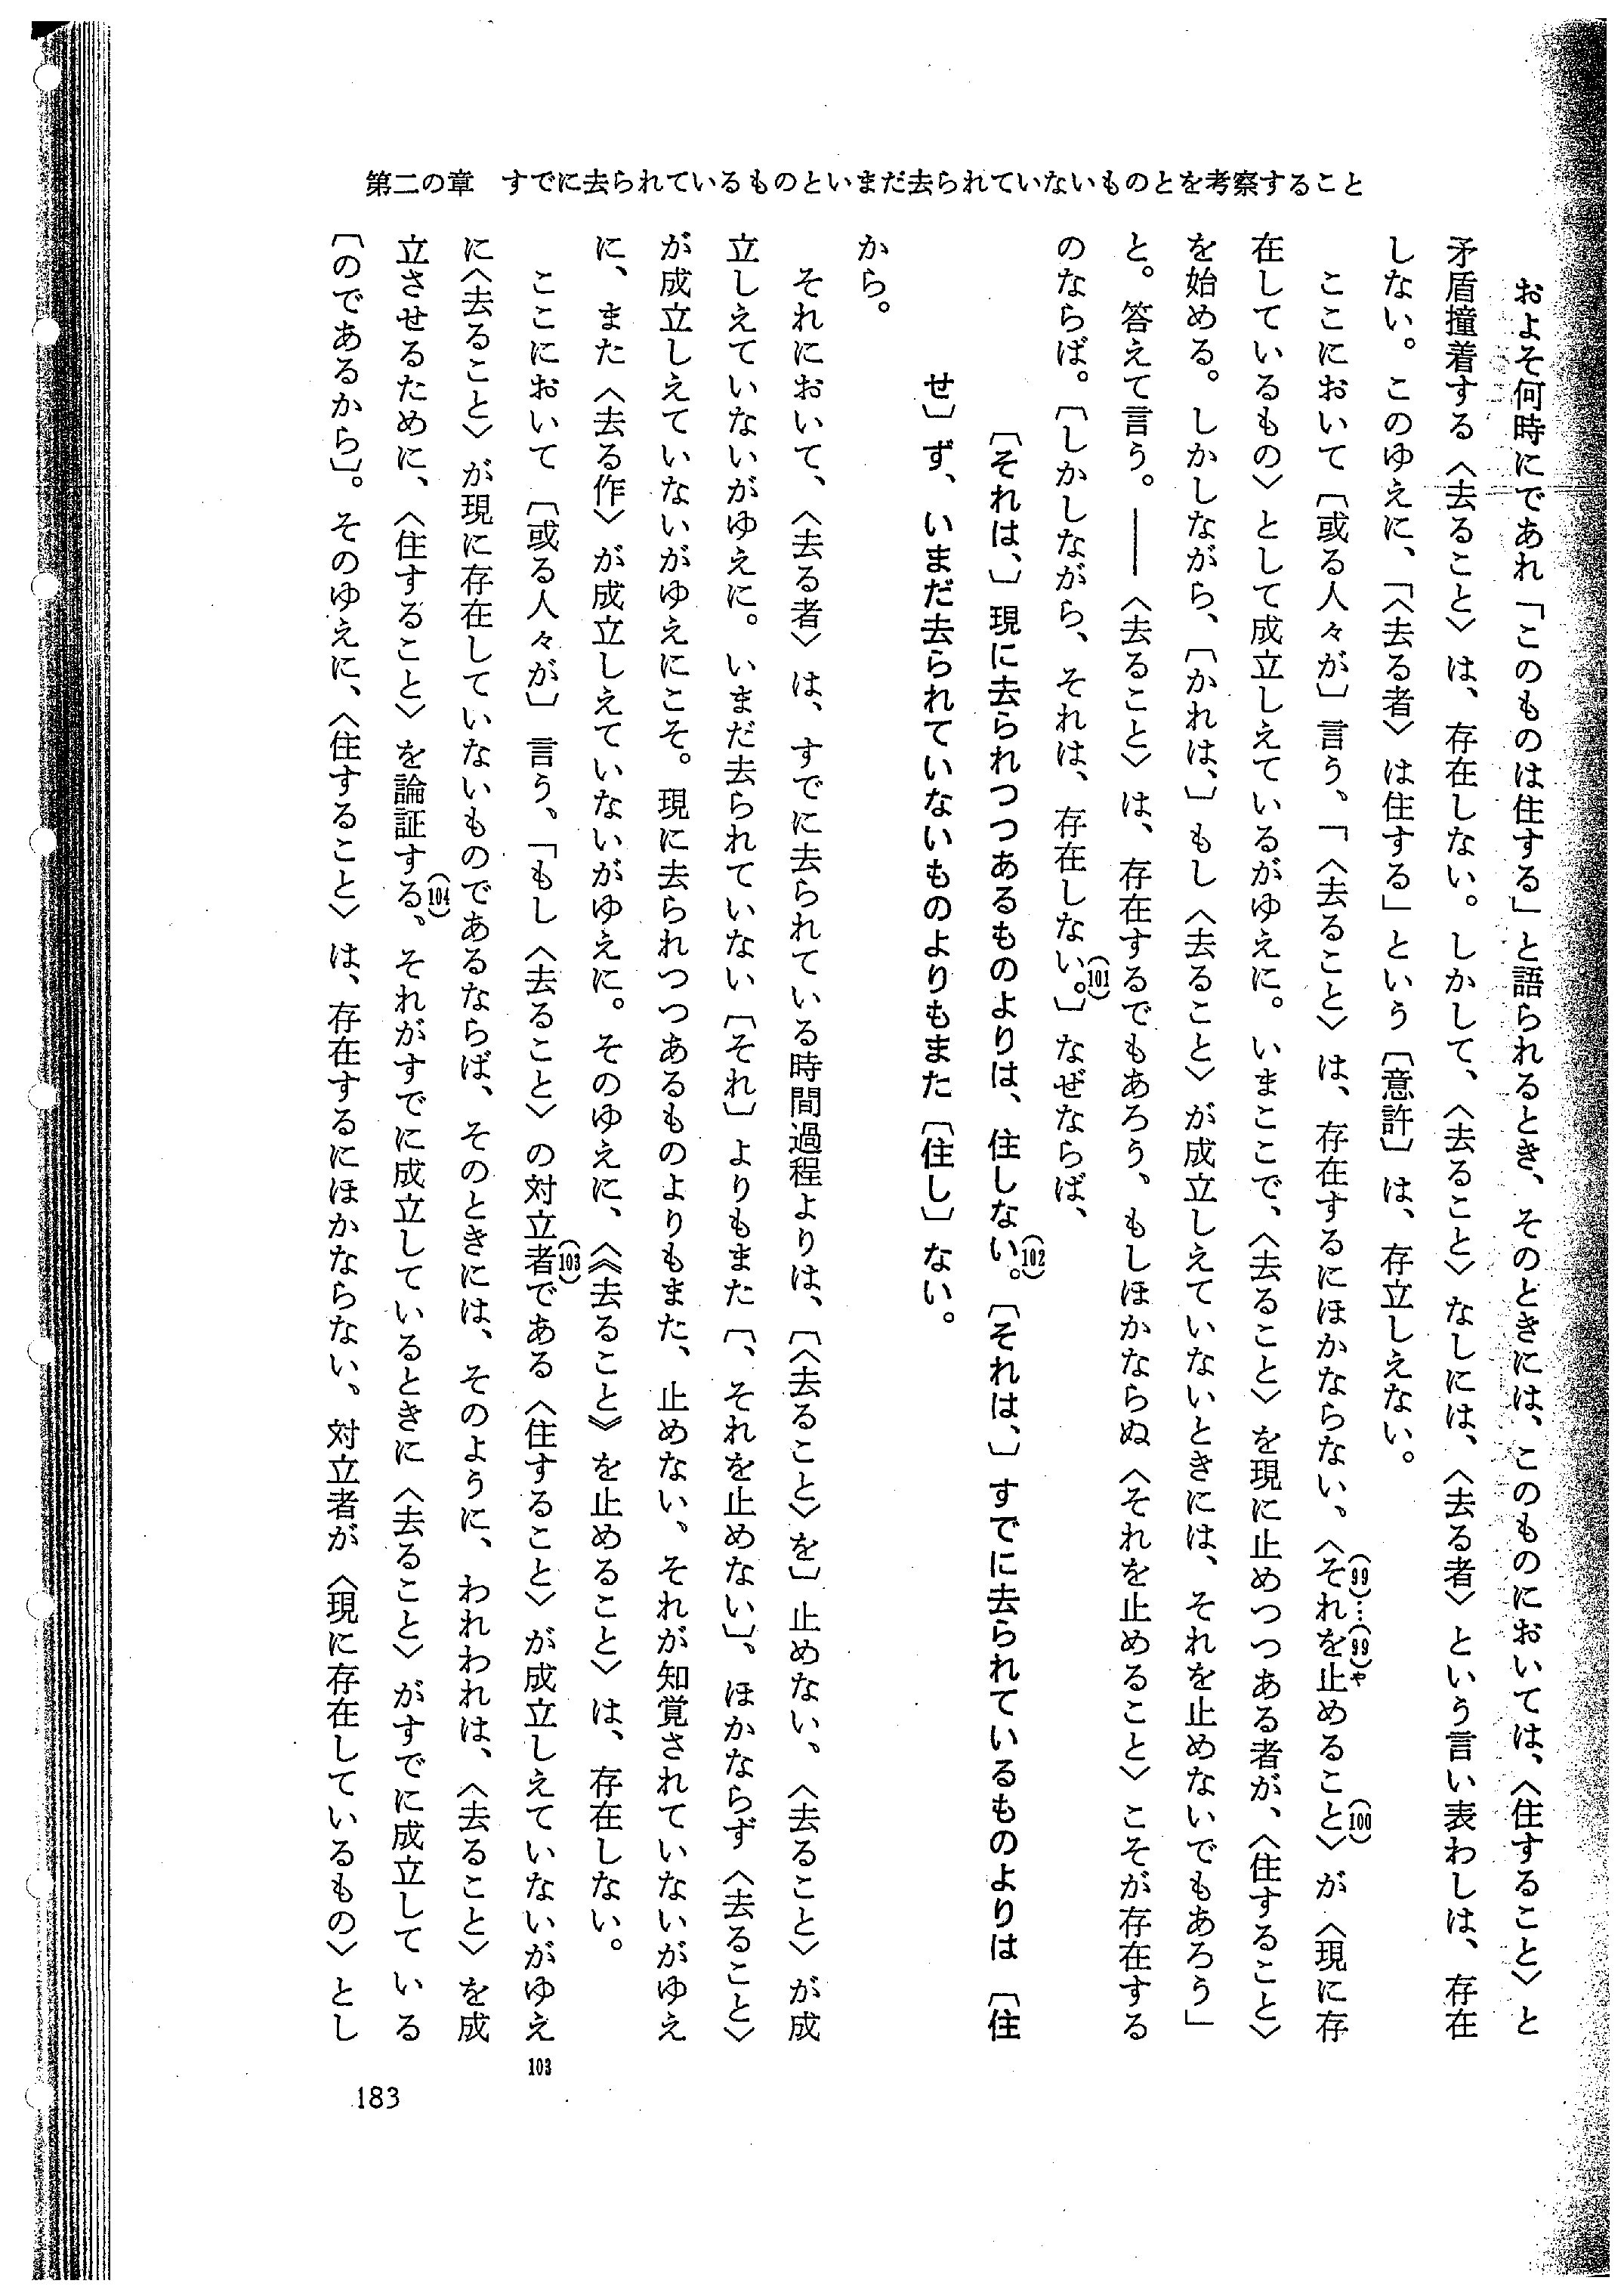 第二の章 すでに去られているものといまだ去られていないものとを考察すること
およそ何時にであれ「このものは住する」と語られるとき、そのときには、このものにおいては、〈住すること〉と
矛盾撞着する〈去ること〉は、存在しない。しかして、〈去ること〉なしには、〈去る者〉という言い表わしは、存在
しない。このゆえに、「〈去る者〉は住する」という〔意許〕は、存立しえない。
ここにおいて〔或る人々が〕言う、「〈去ること〉は、存在するにほかならない、〈それを止めること〉が〈現に存
(99)…(99)や
(100)
在しているもの〉として成立しえているがゆえに。いまここで、〈去ること〉を現に止めつつある者が、〈住すること〉
を始める。しかしながら、〔かれは、〕もし〈去ること〉が成立しえていないときには、それを止めないでもあろう」
と。答えて言う。――〈去ること〉は、存在するでもあろう、もしほかならぬ〈それを止めること〉こそが存在する
のならば。〔しかしながら、それは、存在しない。〕なぜならば、
(101)
〔それは、〕現に去られつつあるものよりは、住しない。〔それは、〕すでに去られているものよりは〔住
(102)
せ〕ず、いまだ去られていないものよりもまた〔住し〕ない。
から。
それにおいて、〈去る者〉は、すでに去られている時間過程よりは、〔〈去ること〉を〕止めない、〈去ること〉が成
立しえていないがゆえに。いまだ去られていない〔それ〕よりもまた〔、それを止めない〕、ほかならず〈去ること〉
が成立しえていないがゆえにこそ。現に去られつつあるものよりもまた、止めない、それが知覚されていないがゆえ
に、また〈去る作〉が成立しえていないがゆえに。そのゆえに、〈《去ること》を止めること〉は、存在しない。
ここにおいて〔或る人々が〕言う、「もし〈去ること〉の対立者である〈住すること〉が成立しえていないがゆえ
(103)
103
に〈去ること〉が現に存在していないものであるならば、そのときには、そのように、われわれは、〈去ること〉を成
立させるために、〈住すること〉を論証する、それがすでに成立しているときに〈去ること〉がすでに成立している
(104)
〔のであるから〕。そのゆえに、〈住すること〉は、存在するにほかならない、対立者が〈現に存在しているもの〉とし
183